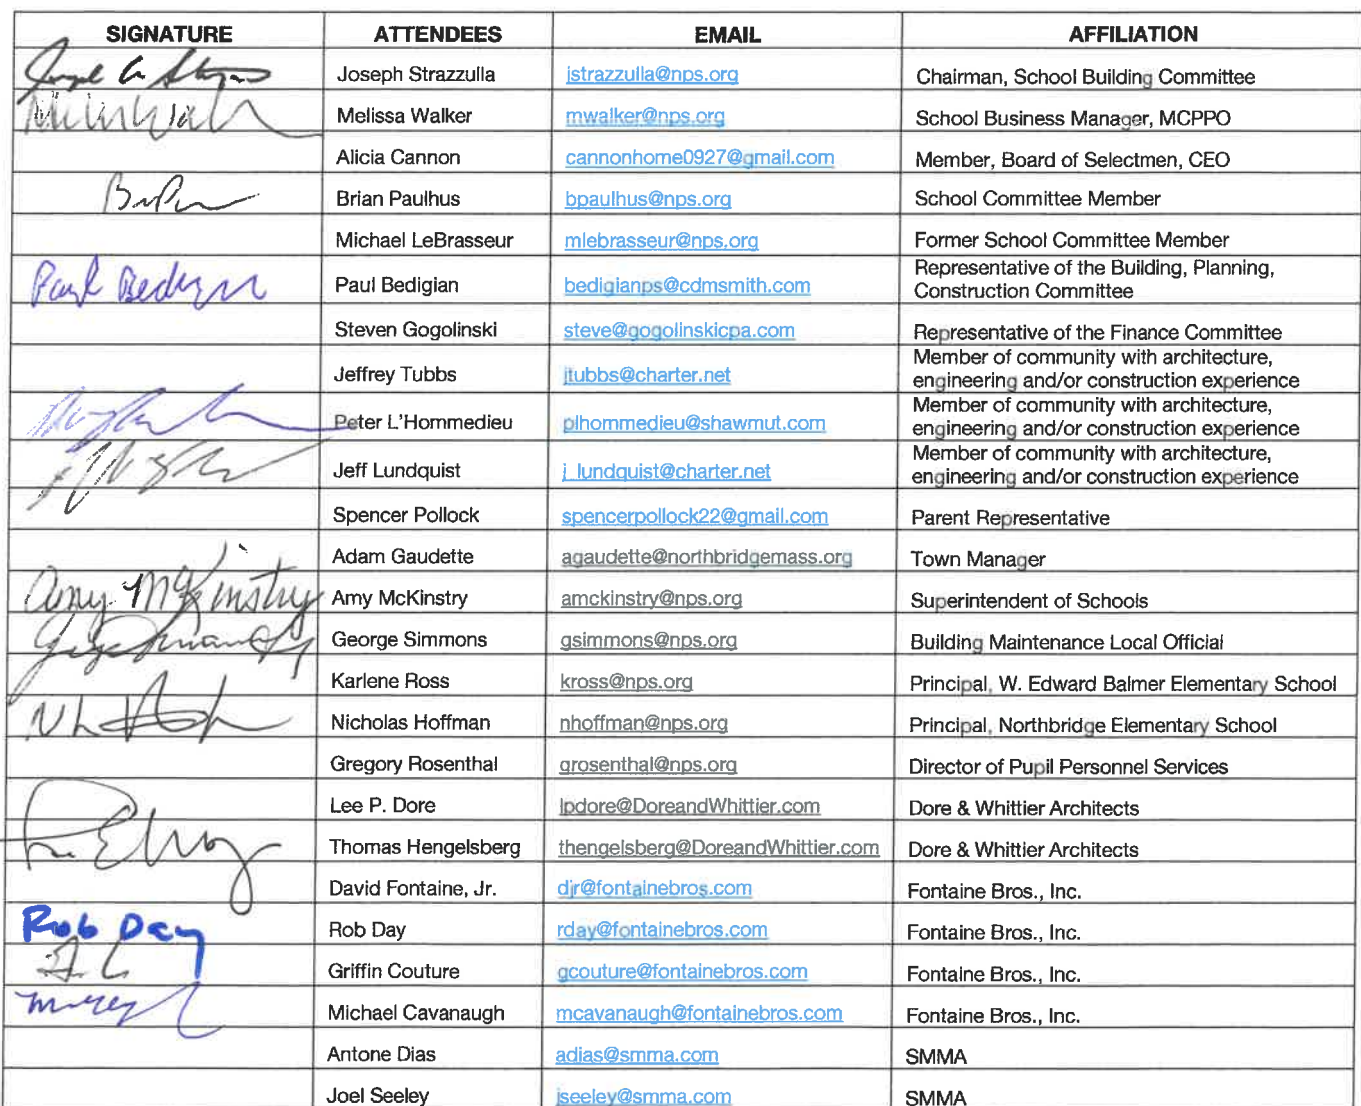 SIGNATURE ATTENDEES EMAIL AFFILIATION
Joseph Strazzulla jstrazzulla@nps.org Chairman, School Building Committee
Melissa Walker mwalker@nps.org School Business Manager, MCPPO
Alicia Cannon cannonhome0927@gmail.com Member, Board of Selectmen, CEO
Brian Paulhus bpaulhus@nps.org School Committee Member
Michael LeBrasseur mlebrasseur@nps.org Former School Committee Member
Paul Bedigian Paul Bedigian bedigianps@cdmsmith.com Representative of the Building, Planning,
Construction Committee
Steven Gogolinski steve@gogolinskicpa.com Representative of the Finance Committee
Jeffrey Tubbs jtubbs@charter.net Member of community with architecture,
engineering and/or construction experience
Peter L'Hommedieu plhommedieu@shawmut.com Member of community with architecture,
engineering and/or construction experience
Jeff Lundquist j_lundquist@charter.net Member of community with architecture,
engineering and/or construction experience
Spencer Pollock spencerpollock22@gmail.com Parent Representative
Adam Gaudette agaudette@northbridgemass.org Town Manager
Amy McKinstry Amy McKinstry amckinstry@nps.org Superintendent of Schools
George Simmons gsimmons@nps.org Building Maintenance Local Official
Karlene Ross kross@nps.org Principal, W. Edward Balmer Elementary School
Nicholas Hoffman nhoffman@nps.org Principal, Northbridge Elementary School
Gregory Rosenthal grosenthal@nps.org Director of Pupil Personnel Services
Lee P. Dore lpdore@DoreandWhittier.com Dore & Whittier Architects
Thomas Hengelsberg thengelsberg@DoreandWhittier.com Dore & Whittier Architects
David Fontaine, Jr. djr@fontainebros.com Fontaine Bros., Inc.
Rob Day Rob Day rday@fontainebros.com Fontaine Bros., Inc.
Griffin Couture gcouture@fontainebros.com Fontaine Bros., Inc.
Michael Cavanaugh mcavanaugh@fontainebros.com Fontaine Bros., Inc.
Antone Dias adias@smma.com SMMA
Joel Seeley jseeley@smma.com SMMA